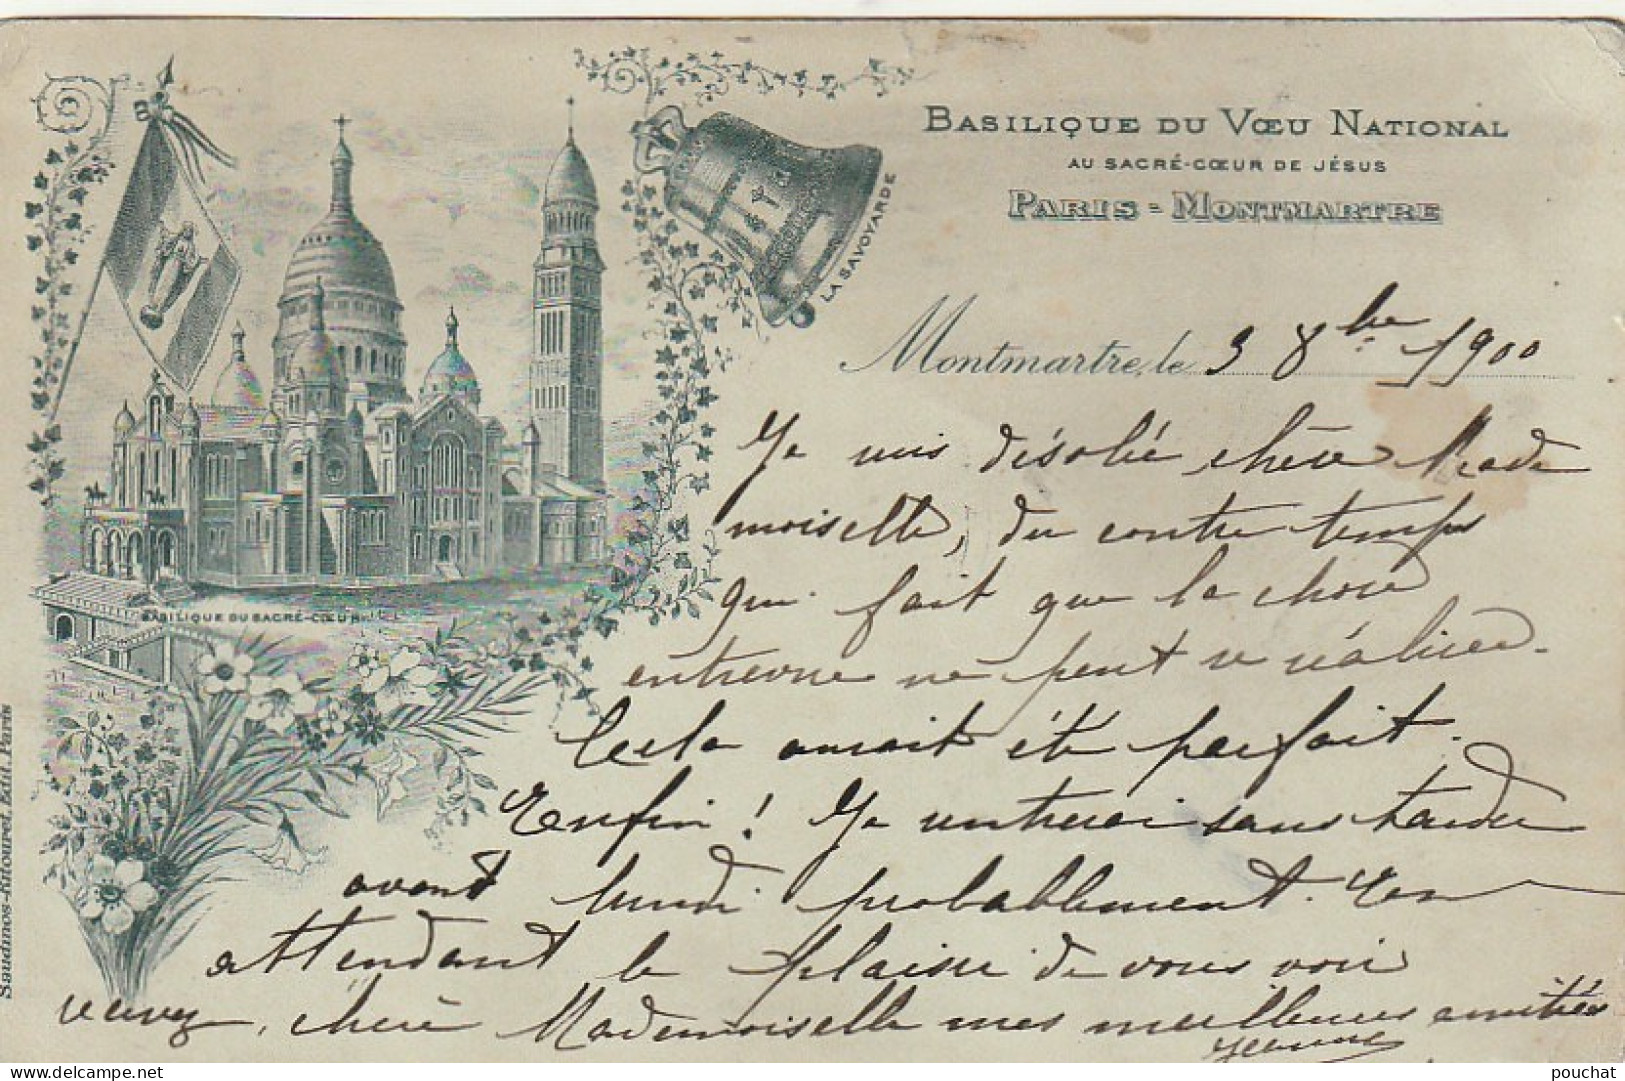 BASILIQUE DU VŒU NATIONAL
AU SACRÉ-CŒUR DE JÉSUS
PARIS - MONTMARTRE
LA SAVOYARDE
BASILIQUE DU SACRÉ-CŒUR
Saudinos-Ritouret, Edit. Paris
Montmartre, le 3 8bre 1900
Je suis désolée chère Made
moiselle, du contre temps
qui fait que la chose
entrevue ne peut se réaliser.
Cela aurait été parfait.
Enfin ! Je rentrerai sans tarder
avant lundi probablement. En
attendant le plaisir de vous voir
recevez, chère Mademoiselle mes meilleures amitiés
Jeanne
© pouchat